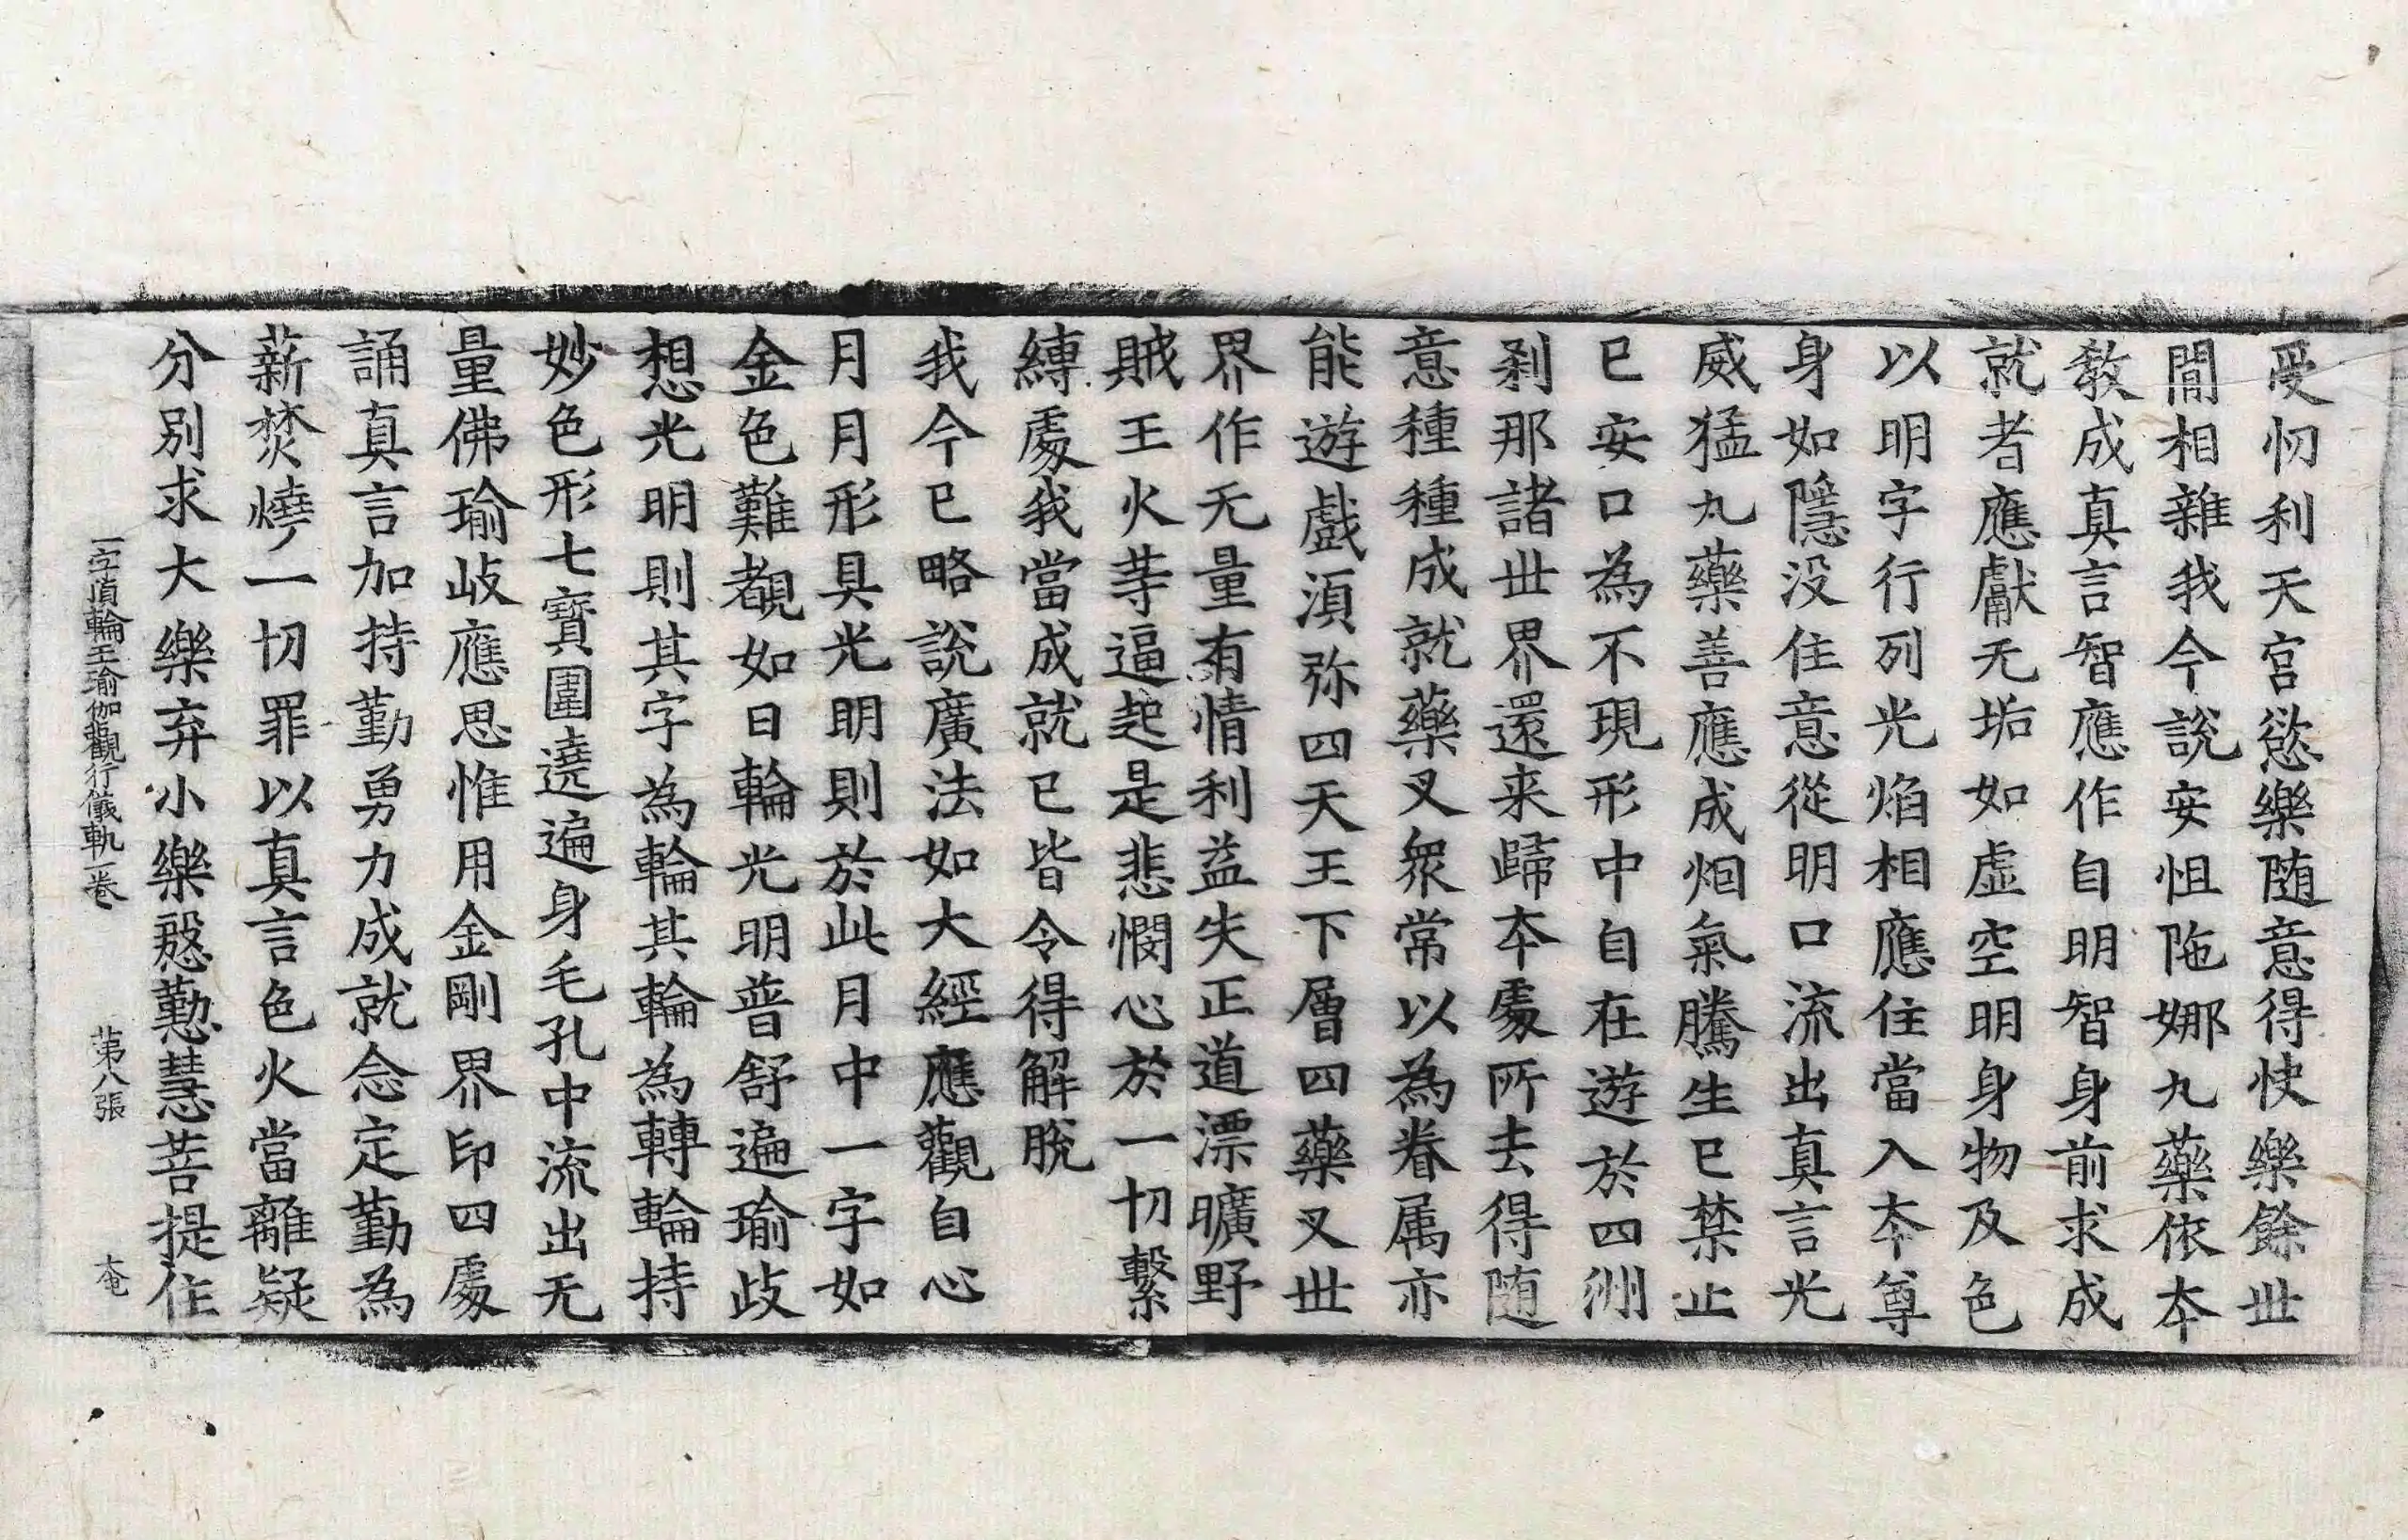 受忉利天宮慾樂随意得快樂餘丗
間相雜我今說安怛陁娜九藥依夲
教成真言智應作自明智身前求成
就者應獻无垢如虛空明身物及色
以明字行列光焰相應住當入夲尊
身如隱没住意從明口流出真言光
威猛丸藥善應成烟氣騰生已禁止
已安口為不現形中自在遊於四洲
刹那諸丗界還来歸夲處所去得随
意種種成就藥叉衆常以為眷属亦
能遊戲湏弥四天王下層四藥叉丗
界作无量有情利益失正道漂曠野
賊王火䓁逼起是悲憫心於一切繫
縛處我當成就已皆令得解脫
我今已略說廣法如大經應觀自心
月月形具光明則於此月中一字如
金色難覩如日輪光明普舒遍瑜歧
想光明則其字為輪其輪為轉輪持
妙色形七寶圍遶遍身毛孔中流出无
量佛瑜岐應思惟用金剛界印四處
誦真言加持勤勇力成就念定勤為
薪焚燒一切罪以真言色火當離疑
分別求大樂弃小樂慇懃慧菩提住
一字頂輪王瑜伽觀行儀軌一卷 苐八張 大奄